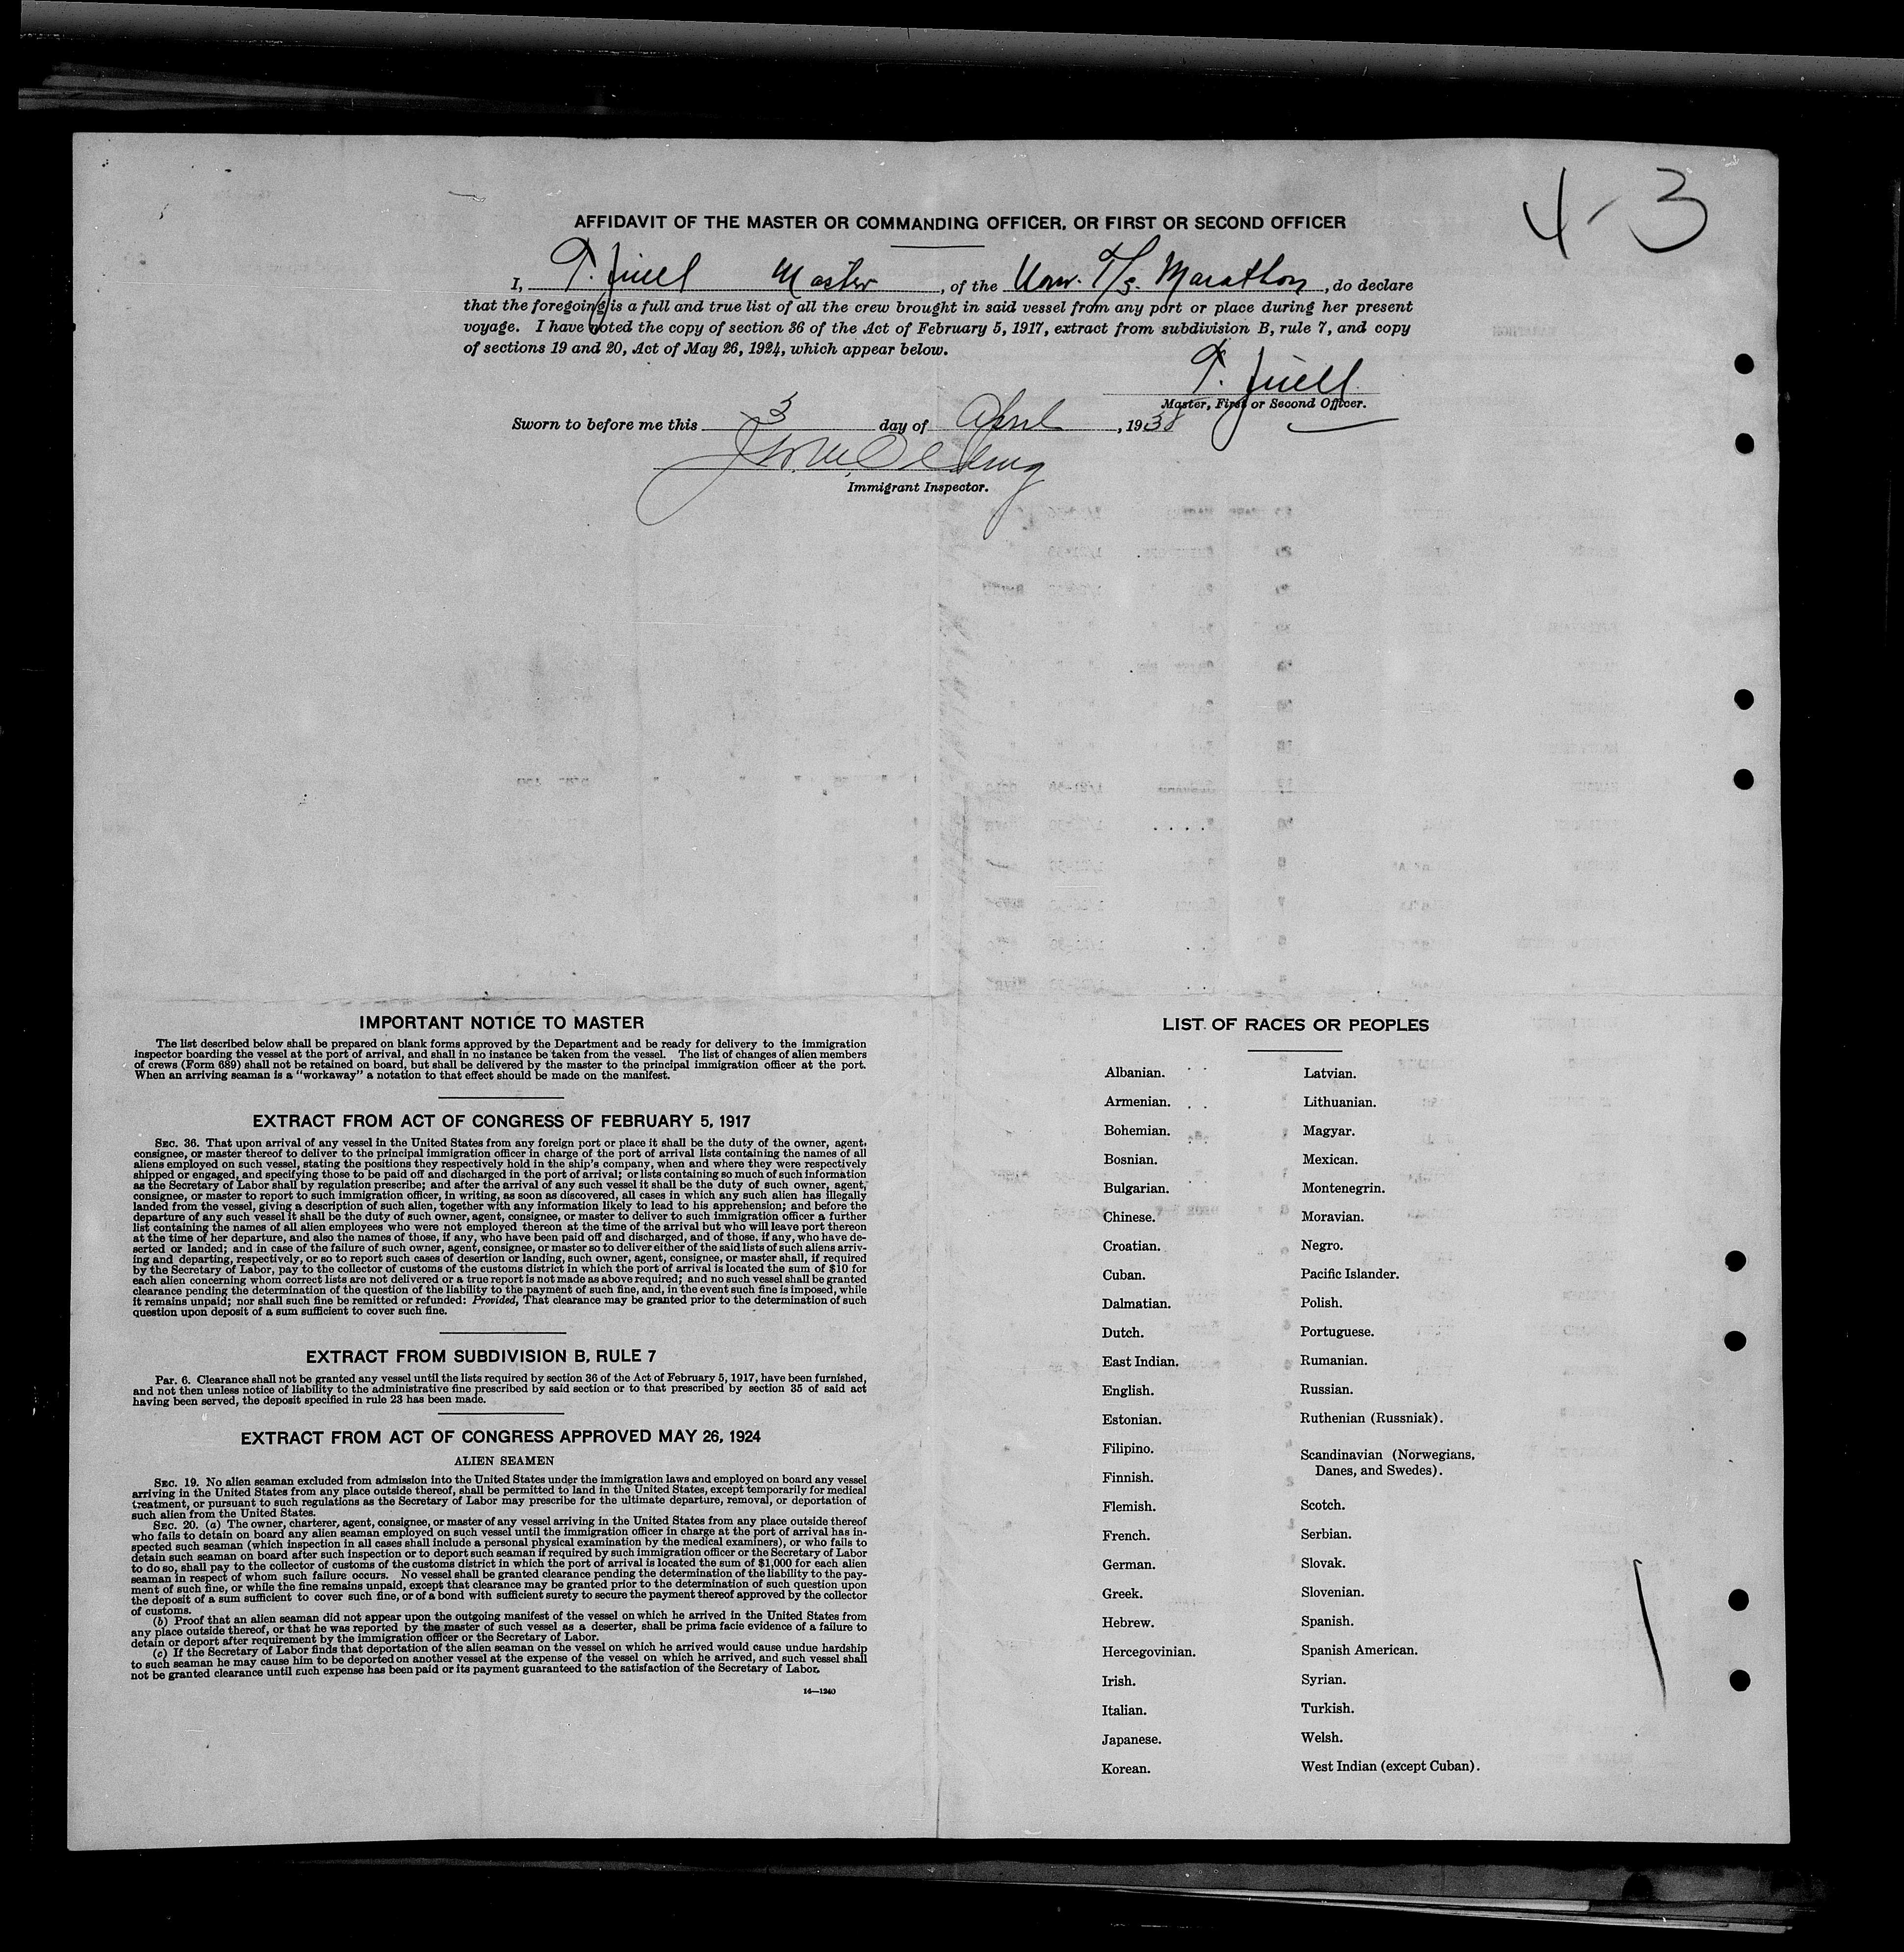 4-3
AFFIDAVIT OF THE MASTER OR COMMANDING OFFICER, OR FIRST OR SECOND OFFICER
I, T. Juell Master, of the Norw. T/S. Marathon, do declare
that the foregoing is a full and true list of all the crew brought in said vessel from any port or place during her present
voyage. I have noted the copy of section 36 of the Act of February 5, 1917, extract from subdivision B, rule 7, and copy
of sections 19 and 20, Act of May 26, 1924, which appear below.
T. Juell
Master, First or Second Officer.
Sworn to before me this 3 day of April, 1938
Immigrant Inspector.
IMPORTANT NOTICE TO MASTER
The list described below shall be prepared on blank forms approved by the Department and be ready for delivery to the immigration
inspector boarding the vessel at the port of arrival, and shall in no instance be taken from the vessel. The list of changes of alien members
of crews (Form 689) shall not be retained on board, but shall be delivered by the master to the principal immigration officer at the port.
When an arriving seaman is a "workaway" a notation to that effect should be made on the manifest.
EXTRACT FROM ACT OF CONGRESS OF FEBRUARY 5, 1917
SEC. 36. That upon arrival of any vessel in the United States from any foreign port or place it shall be the duty of the owner, agent,
consignee, or master thereof to deliver to the principal immigration officer in charge of the port of arrival lists containing the names of all
aliens employed on such vessel, stating the positions they respectively hold in the ship's company, when and where they were respectively
shipped or engaged, and specifying those to be paid off and discharged in the port of arrival; or lists containing so much of such information
as the Secretary of Labor shall by regulation prescribe; and after the arrival of any such vessel it shall be the duty of such owner, agent,
consignee, or master to report to such immigration officer, in writing, as soon as discovered, all cases in which any such alien has illegally
landed from the vessel, giving a description of such alien, together with any information likely to lead to his apprehension; and before the
departure of any such vessel it shall be the duty of such owner, agent, consignee, or master to deliver to such immigration officer a further
list containing the names of all alien employees who were not employed thereon at the time of the arrival but who will leave port thereon
at the time of her departure, and also the names of those, if any, who have been paid off and discharged, and of those, if any, who have de-
serted or landed; and in case of the failure of such owner, agent, consignee, or master so to deliver either of the said lists of such aliens arriv-
ing and departing, respectively, or so to report such cases of desertion or landing, such owner, agent, consignee, or master shall, if required
by the Secretary of Labor, pay to the collector of customs of the customs district in which the port of arrival is located the sum of $10 for
each alien concerning whom correct lists are not delivered or a true report is not made as above required; and no such vessel shall be granted
clearance pending the determination of the question of the liability to the payment of such fine, and, in the event such fine is imposed, while
it remains unpaid; nor shall such fine be remitted or refunded: Provided, That clearance may be granted prior to the determination of such
question upon deposit of a sum sufficient to cover such fine.
EXTRACT FROM SUBDIVISION B, RULE 7
Par. 6. Clearance shall not be granted any vessel until the lists required by section 36 of the Act of February 5, 1917, have been furnished,
and not then unless notice of liability to the administrative fine prescribed by said section or to that prescribed by section 35 of said act
having been served, the deposit specified in rule 23 has been made.
EXTRACT FROM ACT OF CONGRESS APPROVED MAY 26, 1924
ALIEN SEAMEN
SEC. 19. No alien seaman excluded from admission into the United States under the immigration laws and employed on board any vessel
arriving in the United States from any place outside thereof, shall be permitted to land in the United States, except temporarily for medical
treatment, or pursuant to such regulations as the Secretary of Labor may prescribe for the ultimate departure, removal, or deportation of
such alien from the United States.
SEC. 20. (a) The owner, charterer, agent, consignee, or master of any vessel arriving in the United States from any place outside thereof
who fails to detain on board any alien seaman employed on such vessel until the immigration officer in charge at the port of arrival has in-
spected such seaman (which inspection in all cases shall include a personal physical examination by the medical examiners), or who fails to
detain such seaman on board after such inspection or to deport such seaman if required by such immigration officer or the Secretary of Labor
to do so, shall pay to the collector of customs of the customs district in which the port of arrival is located the sum of $1,000 for each alien
seaman in respect of whom such failure occurs. No vessel shall be granted clearance pending the determination of the liability to the pay-
ment of such fine, or while the fine remains unpaid, except that clearance may be granted prior to the determination of such question upon
the deposit of a sum sufficient to cover such fine, or of a bond with sufficient surety to secure the payment thereof approved by the collector
of customs.
(b) Proof that an alien seaman did not appear upon the outgoing manifest of the vessel on which he arrived in the United States from
any place outside thereof, or that he was reported by the master of such vessel as a deserter, shall be prima facie evidence of a failure to
detain or deport after requirement by the immigration officer or the Secretary of Labor.
(c) If the Secretary of Labor finds that deportation of the alien seaman on the vessel on which he arrived would cause undue hardship
to such seaman he may cause him to be deported on another vessel at the expense of the vessel on which he arrived, and such vessel shall
not be granted clearance until such expense has been paid or its payment guaranteed to the satisfaction of the Secretary of Labor.
14—1240
LIST OF RACES OR PEOPLES
Albanian.
Armenian.
Bohemian.
Bosnian.
Bulgarian.
Chinese.
Croatian.
Cuban.
Dalmatian.
Dutch.
East Indian.
English.
Estonian.
Filipino.
Finnish.
Flemish.
French.
German.
Greek.
Hebrew.
Hercegovinian.
Irish.
Italian.
Japanese.
Korean.
Latvian.
Lithuanian.
Magyar.
Mexican.
Montenegrin.
Moravian.
Negro.
Pacific Islander.
Polish.
Portuguese.
Rumanian.
Russian.
Ruthenian (Russniak).
Scandinavian (Norwegians,
Danes, and Swedes).
Scotch.
Serbian.
Slovak.
Slovenian.
Spanish.
Spanish American.
Syrian.
Turkish.
Welsh.
West Indian (except Cuban).